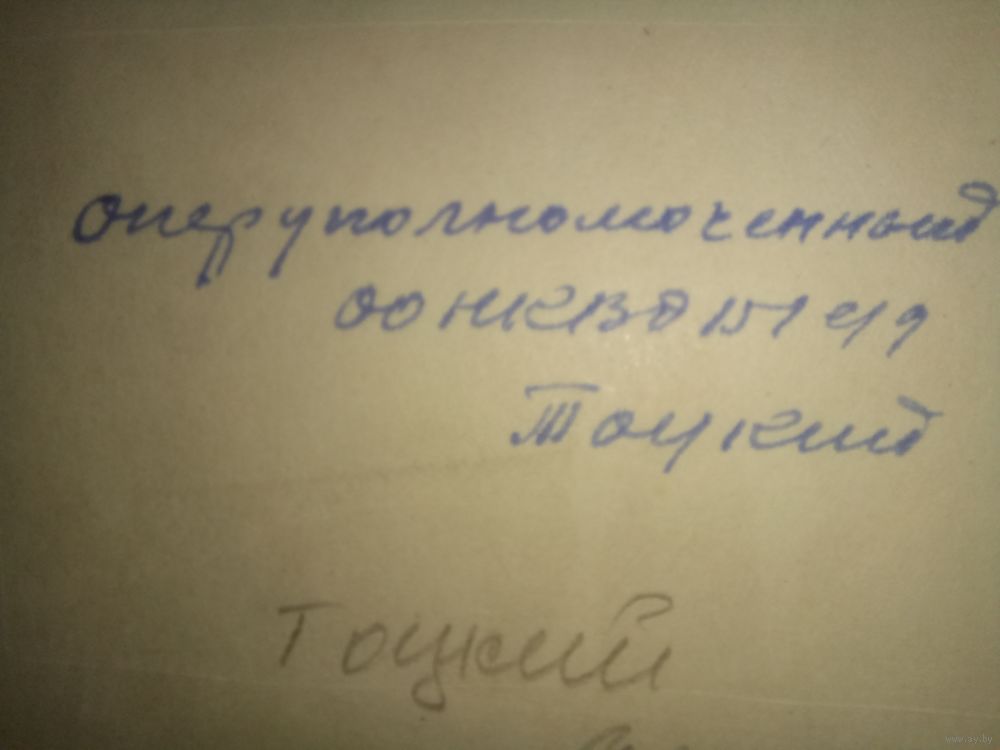 Оперуполномоченный
ОО НКВД 151 сд
Тоцкий
Тоцкий
www.ay.by